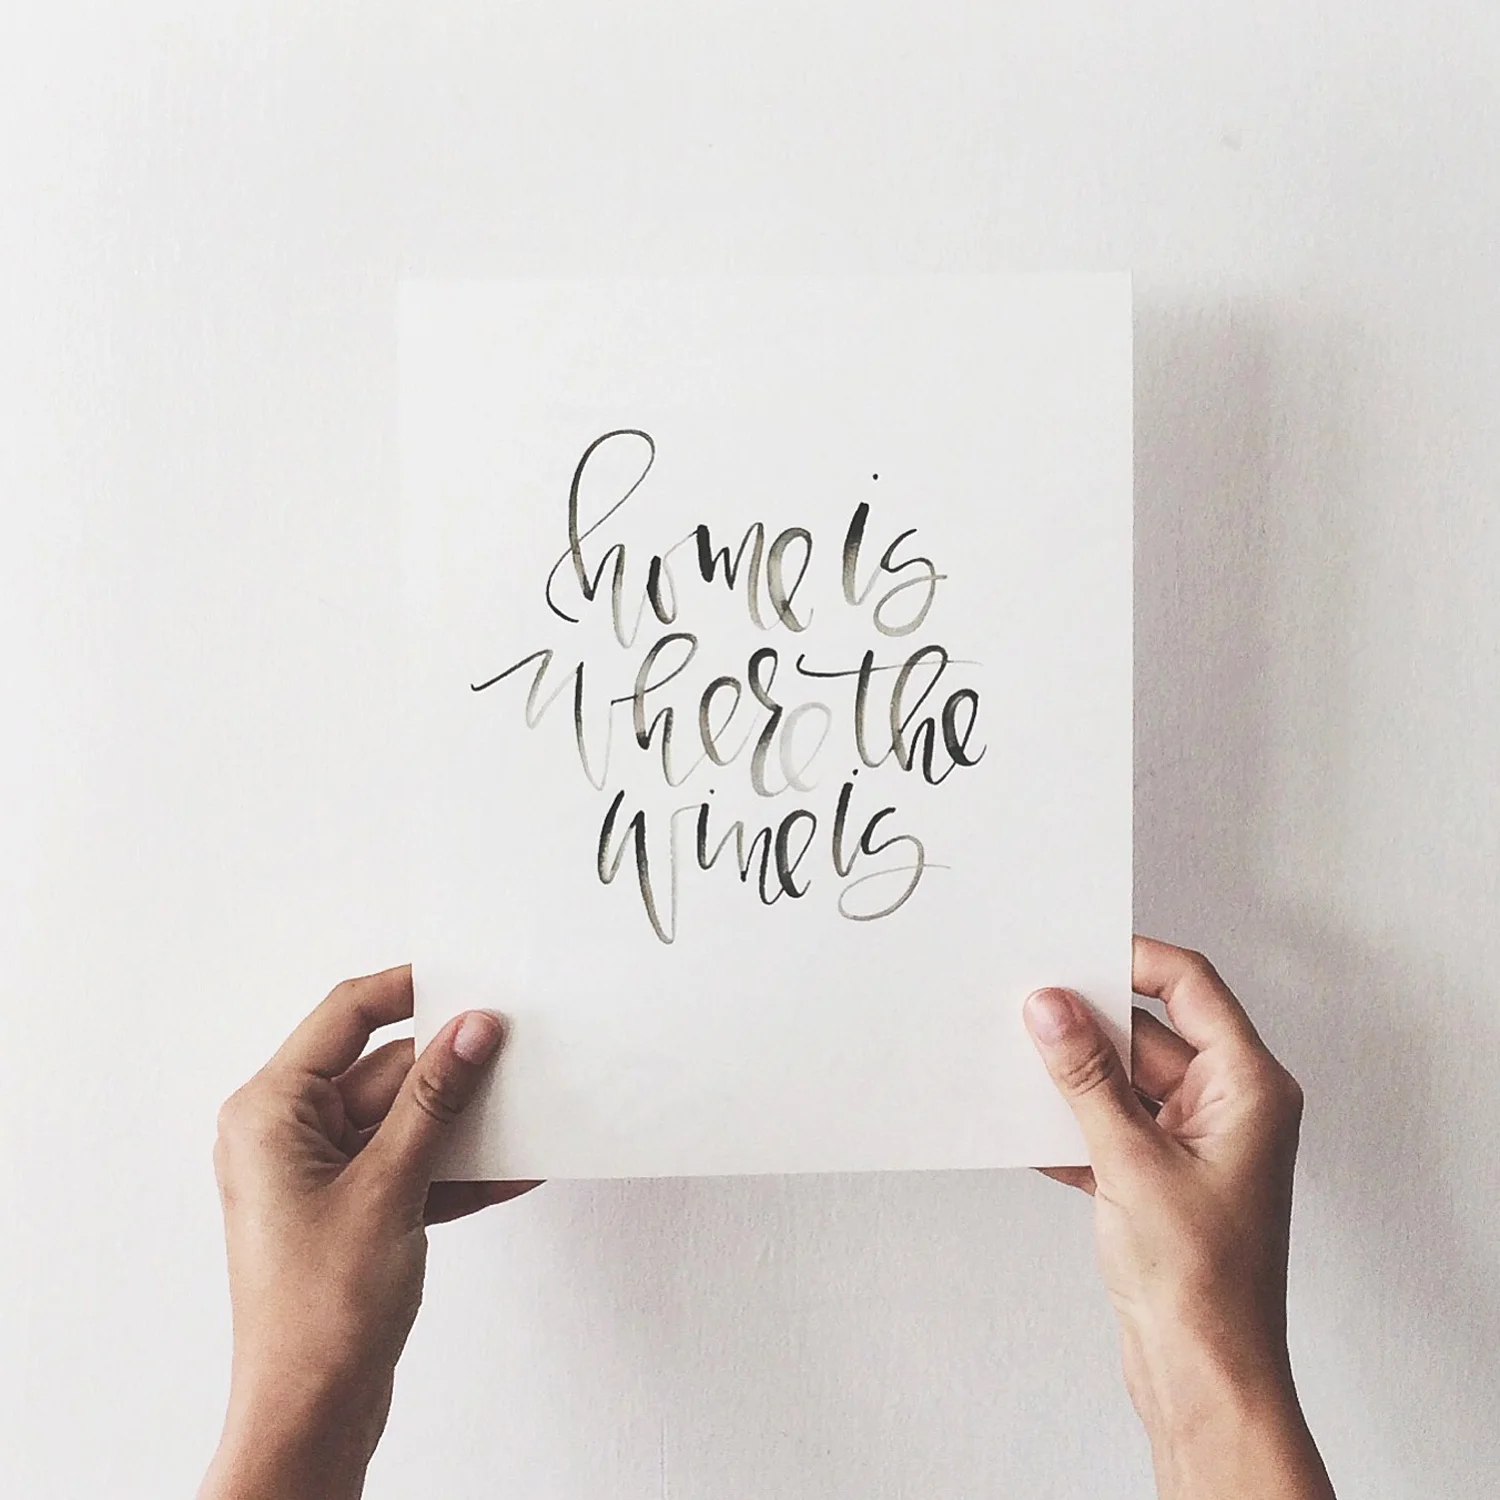 home is
where the
wine is